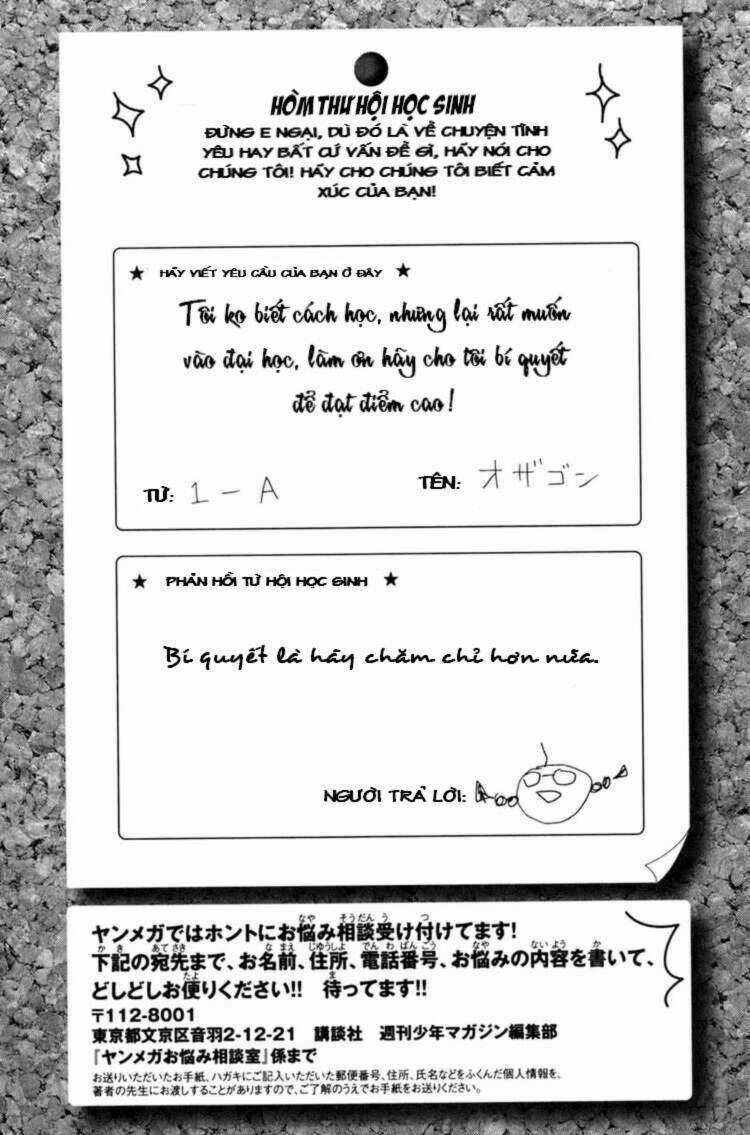 HÒM THƯ HỘI HỌC SINH
ĐỪNG E NGẠI, DÙ ĐÓ LÀ VỀ CHUYỆN TÌNH
YÊU HAY BẤT CỨ VẤN ĐỀ GÌ, HÃY NÓI CHO
CHÚNG TÔI! HÃY CHO CHÚNG TÔI BIẾT CẢM
XÚC CỦA BẠN!
★ HÃY VIẾT YÊU CẦU CỦA BẠN Ở ĐÂY ★
Tôi ko biết cách học, nhưng lại rất muốn
vào đại học, làm ơn hãy cho tôi bí quyết
để đạt điểm cao!
TỪ: 1-A TÊN: オザゴン
★ PHẢN HỒI TỪ HỘI HỌC SINH ★
Bí quyết là hãy chăm chỉ hơn nữa.
NGƯỜI TRẢ LỜI:
ヤンメガではホントにお悩み相談受け付けてます!
下記の宛先まで、お名前、住所、電話番号、お悩みの内容を書いて、
どしどしお便りください!! 待ってます!!
〒112-8001
東京都文京区音羽2-12-21 講談社 週刊少年マガジン編集部
『ヤンメガお悩み相談室』係まで
お送りいただいたお手紙、ハガキにご記入いただいた郵便番号、住所、氏名などをふくんだ個人情報を、
著者の先生にお渡しすることがありますので、ご了解のうえでお手紙をお送りください。